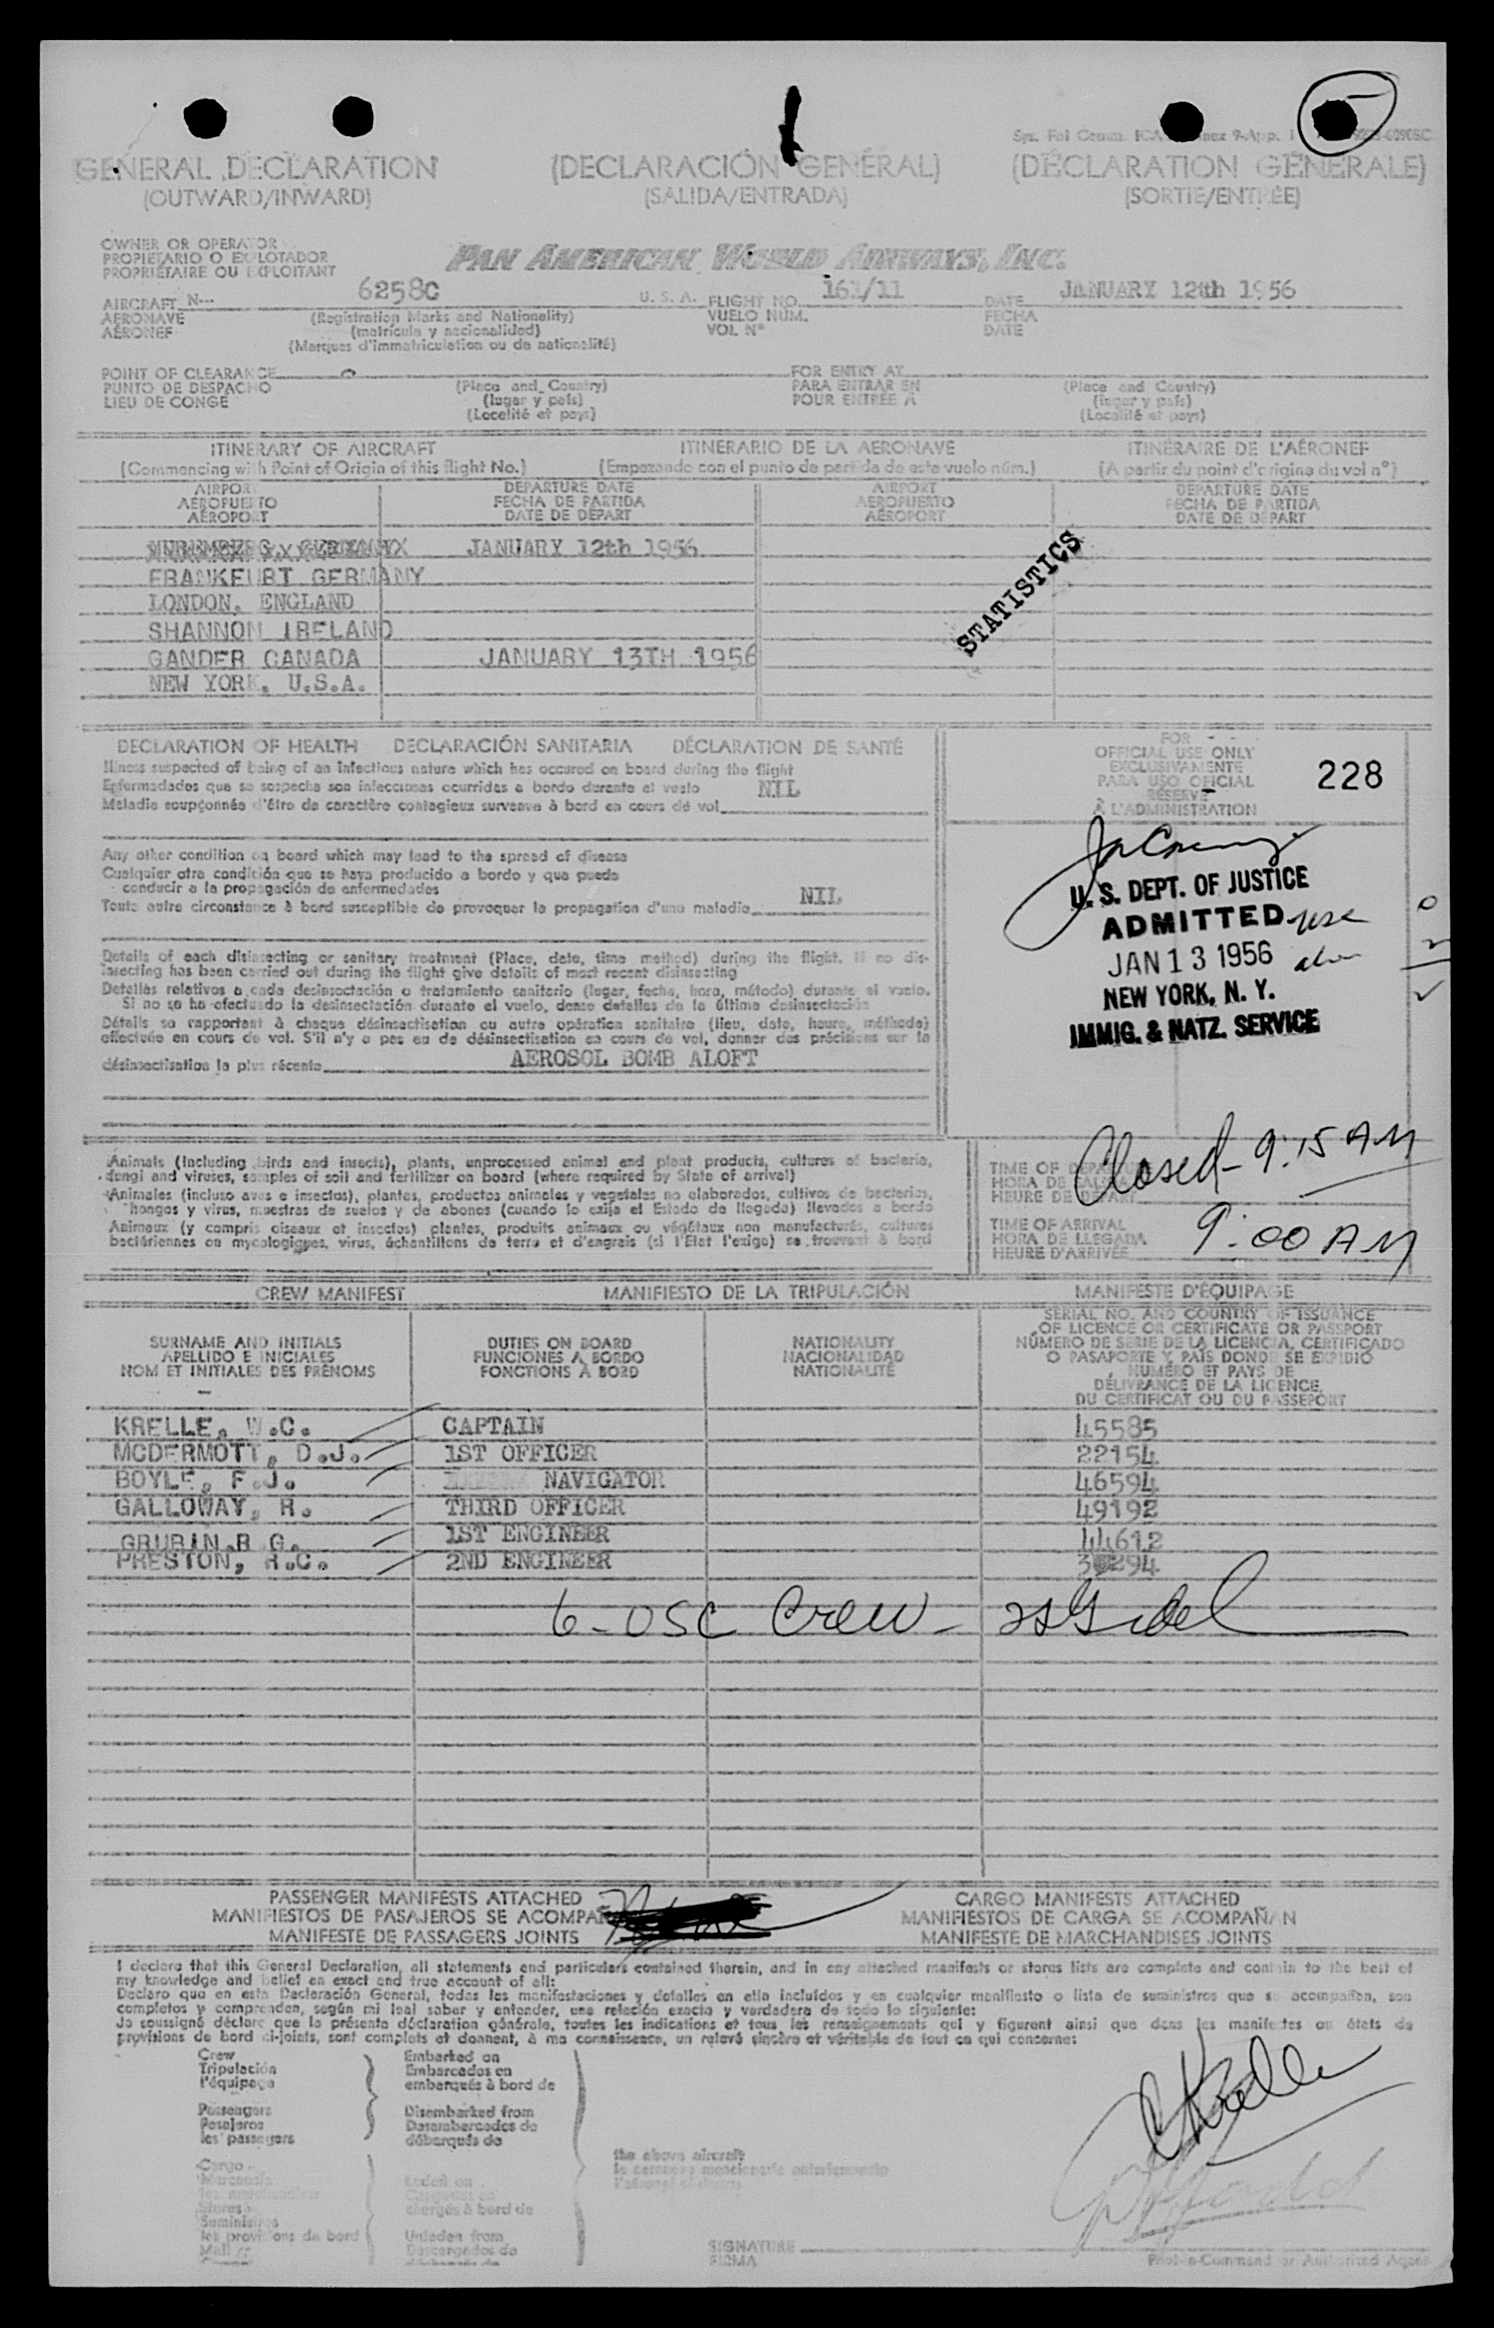 GENERAL DECLARATION (DECLARACIÓN GENERAL) (DÉCLARATION GÉNÉRALE)
(OUTWARD/INWARD) (SALIDA/ENTRADA) (SORTIE/ENTRÉE)
OWNER OR OPERATOR
PROPIETARIO O EXPLOTADOR
PROPRIÉTAIRE OU EXPLOITANT
PAN AMERICAN WORLD AIRWAYS, INC.
AIRCRAFT N--- 6258C U. S. A. FLIGHT NO. 161/11 DATE JANUARY 12th 1956
AERONAVE (Registration Marks and Nationality) VUELO NÚM. FECHA
AÉRONEF (matrícula y nacionalidad) VOL Nº DATE
(Marques d'immatriculation ou de nationalité)
POINT OF CLEARANCE FOR ENTRY AT
PUNTO DE DESPACHO (Place and Country) PARA ENTRAR EN (Place and Country)
LIEU DE CONGÉ (lugar y país) POUR ENTRÉE À (lugar y país)
(Localité et pays) (Localité et pays)
ITINERARY OF AIRCRAFT ITINERARIO DE LA AERONAVE ITINÉRAIRE DE L'AÉRONEF
(Commencing with Point of Origin of this flight No.) (Empezando con el punto de partida de este vuelo núm.) (A partir du point d'origine du vol nº)
AIRPORT DEPARTURE DATE AIRPORT DEPARTURE DATE
AEROPUERTO FECHA DE PARTIDA AEROPUERTO FECHA DE PARTIDA
AÉROPORT DATE DE DÉPART AÉROPORT DATE DE DÉPART
JANUARY 12th 1956
FRANKFURT GERMANY
LONDON, ENGLAND
SHANNON IRELAND
GANDER CANADA JANUARY 13TH 1956
NEW YORK, U.S.A.
STATISTICS
DECLARATION OF HEALTH DECLARACIÓN SANITARIA DÉCLARATION DE SANTÉ
Illness suspected of being of an infectious nature which has occured on board during the flight
Enfermedades que se sospecha son infecciosas ocurridas a bordo durante el vuelo NIL
Maladie soupçonnée d'être de caractère contagieux survenue à bord en cours de vol
Any other condition on board which may lead to the spread of disease
Cualquier otra condición que se haya producido a bordo y que pueda
conducir a la propagación de enfermedades
Toute autre circonstance à bord susceptible de provoquer la propagation d'une maladie NIL
Details of each disinsecting or sanitary treatment (Place, date, time method) during the flight. If no dis-
insecting has been carried out during the flight give details of most recent disinsecting
Detalles relativos a cada desinsectación o tratamiento sanitario (lugar, fecha, hora, método) durante el vuelo.
Si no se ha efectuado la desinsectación durante el vuelo, dense detalles de la última desinsectación
Détails se rapportant à chaque désinsectisation ou autre opération sanitaire (lieu, date, heure, méthode)
effectuée en cours de vol. S'il n'y a pas eu de désinsectisation en cours de vol, donner des précisions sur la
désinsectisation la plus récente AEROSOL BOMB ALOFT
FOR
OFFICIAL USE ONLY
EXCLUSIVAMENTE
PARA USO OFICIAL
RÉSERVÉ
À L'ADMINISTRATION
228
U. S. DEPT. OF JUSTICE
ADMITTED
JAN 13 1956
NEW YORK, N. Y.
IMMIG. & NATZ. SERVICE
Animals (including birds and insects), plants, unprocessed animal and plant products, cultures of bacteria,
fungi and viruses, samples of soil and fertilizer on board (where required by State of arrival)
Animales (incluso aves e insectos), plantas, productos animales y vegetales no elaborados, cultivos de bacterias,
hongos y virus, muestras de suelos y de abonos (cuando lo exija el Estado de llegada) llevados a bordo
Animaux (y compris oiseaux et insectes) plantes, produits animaux ou végétaux non manufacturés, cultures
bactériennes ou mycologiques, virus, échantillons de terre et d'engrais (si l'État l'exige) se trouvant à bord
TIME OF DEPARTURE
HORA DE SALIDA Closed - 9:15 AM
HEURE DE DÉPART
TIME OF ARRIVAL
HORA DE LLEGADA 9:00 AM
HEURE D'ARRIVÉE
CREW MANIFEST MANIFIESTO DE LA TRIPULACIÓN MANIFESTE D'ÉQUIPAGE
SURNAME AND INITIALS DUTIES ON BOARD NATIONALITY
APELLIDO E INICIALES FUNCIONES A BORDO NACIONALIDAD
NOM ET INITIALES DES PRÉNOMS FONCTIONS À BORD NATIONALITÉ
SERIAL NO. AND COUNTRY OF ISSUANCE
OF LICENCE OR CERTIFICATE OR PASSPORT
NÚMERO DE SERIE DE LA LICENCIA, CERTIFICADO
O PASAPORTE Y PAÍS DONDE SE EXPIDIÓ
NUMÉRO ET PAYS DE
DÉLIVRANCE DE LA LICENCE,
DU CERTIFICAT OU DU PASSEPORT
KRELLE, W.C. CAPTAIN 45585
MCDERMOTT, D.J. 1ST OFFICER 22154
BOYLE, F.J. NAVIGATOR 46594
GALLOWAY, R. THIRD OFFICER 49192
GRUBIN.R G. 1ST ENGINEER 44612
PRESTON, R.C. 2ND ENGINEER
6-USC Crew -
PASSENGER MANIFESTS ATTACHED CARGO MANIFESTS ATTACHED
MANIFIESTOS DE PASAJEROS SE ACOMPAÑAN MANIFIESTOS DE CARGA SE ACOMPAÑAN
MANIFESTE DE PASSAGERS JOINTS MANIFESTE DE MARCHANDISES JOINTS
I declare that this General Declaration, all statements and particulars contained therein, and in any attached manifests or stores lists are complete and contain to the best of
my knowledge and belief an exact and true account of all:
Declaro que en esta Declaración General, todas las manifestaciones y detalles en ella incluídos y en cualquier manifiesto o lista de suministros que se acompañen, son
completos y comprenden, según mi leal saber y entender, una relación exacta y verdadera de todo lo siguiente:
Je soussigné déclare que la présente déclaration générale, toutes les indications et tous les renseignements qui y figurent ainsi que dans les manifestes ou états de
provisions de bord ci-joints, sont complets et donnent, à ma connaissance, un relevé sincère et véritable de tout ce qui concerne:
Crew Embarked on
Tripulación Embarcados en
l'équipage embarqués à bord de
Passengers Disembarked from
Pasajeros Desembarcados de
les passagers débarqués de
the above aircraft
Cargo
Stores
les provisions de bord chargés à bord de
Mail Unladen from
Descargados de
SIGNATURE
FIRMA
Pilot-in-Command or Authorized Agent